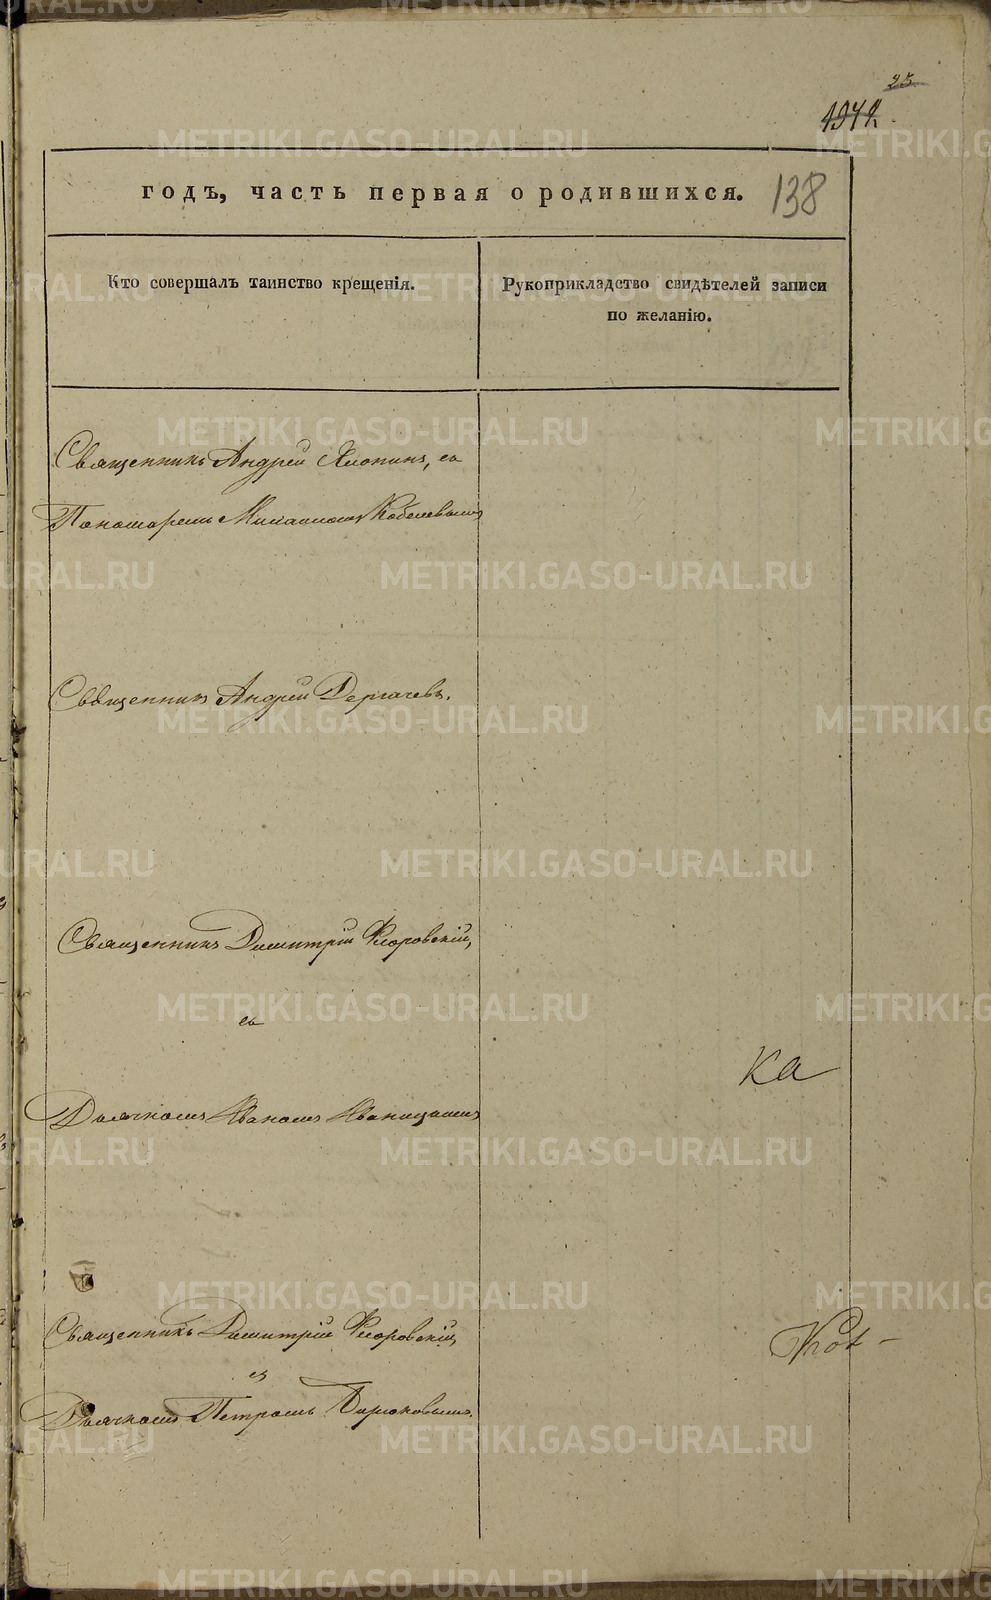 25
1942.
годъ, часть первая о родившихся. 138
Кто совершалъ таинство крещенія.
Рукоприкладство свидѣтелей записи
по желанію.
Священникъ Андрей Хлопинъ, съ
Пономаремъ Михаиломъ Кобелевымъ
Священникъ Андрей Дергачевъ.
Священникъ Димитрій Флоровскій,
съ
Ка
Дьячкомъ Иваномъ Иваницкимъ
Священникъ Димитрій Флоровскій,
съ
Дьячкомъ Петромъ Бирюковымъ.
METRIKI.GASO-URAL.RU